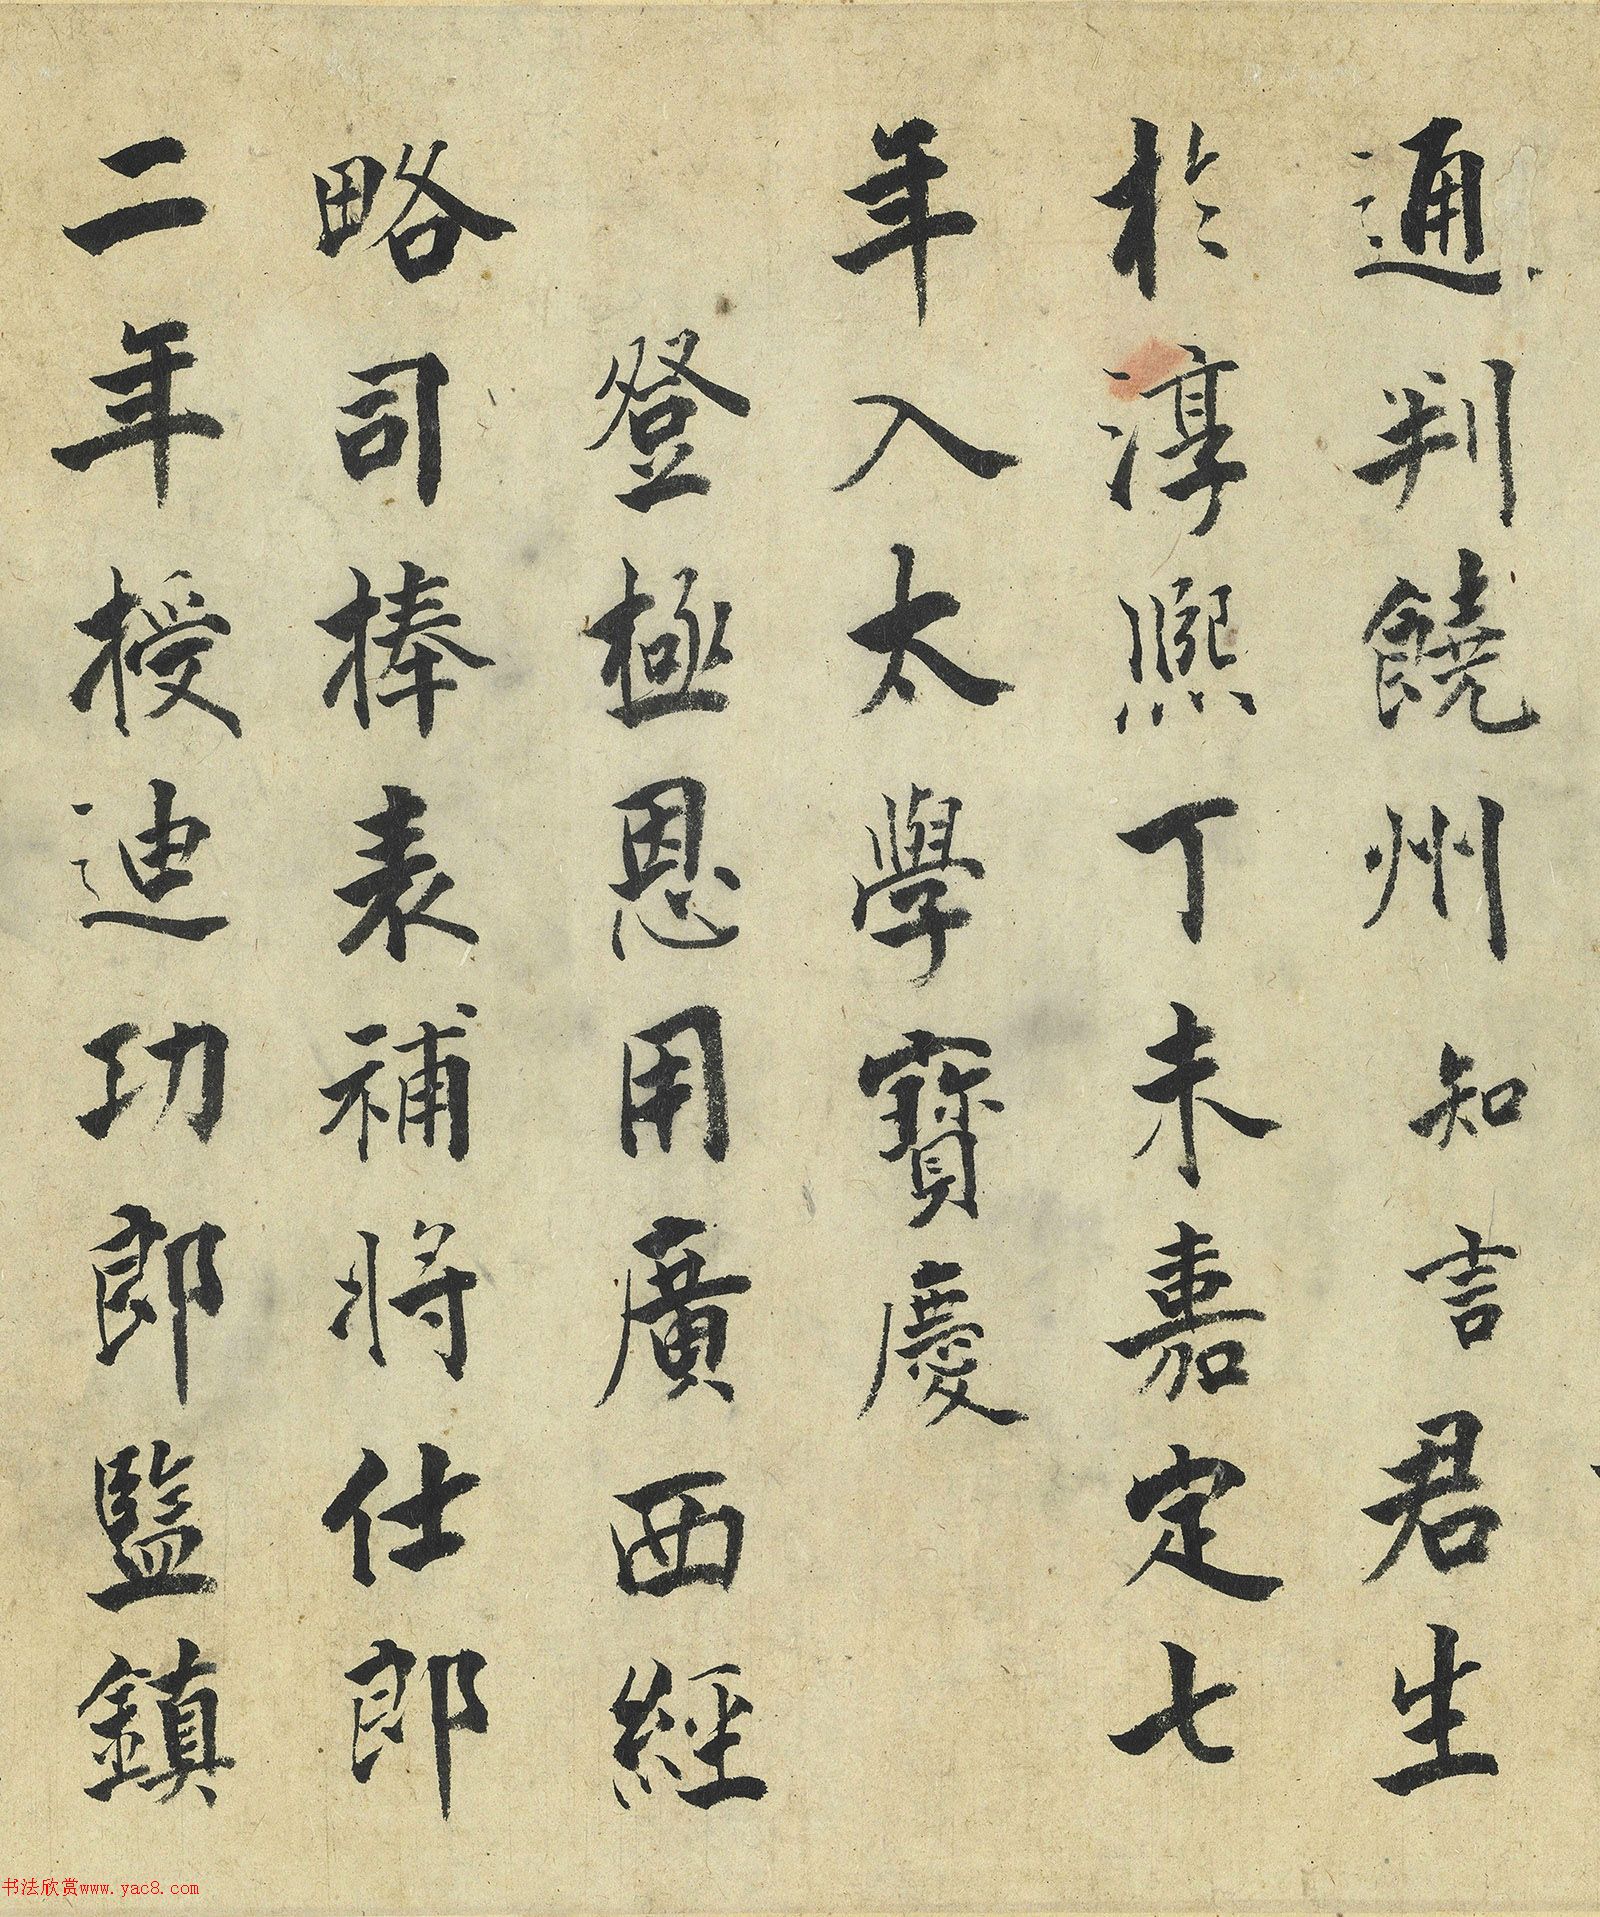 通判饒州知言君生
於淳熙丁未嘉定七
年入太學寶慶
登極恩用廣西經
略司捧表補將仕郎
二年授迪功郎監鎮
书法欣赏www.yac8.com